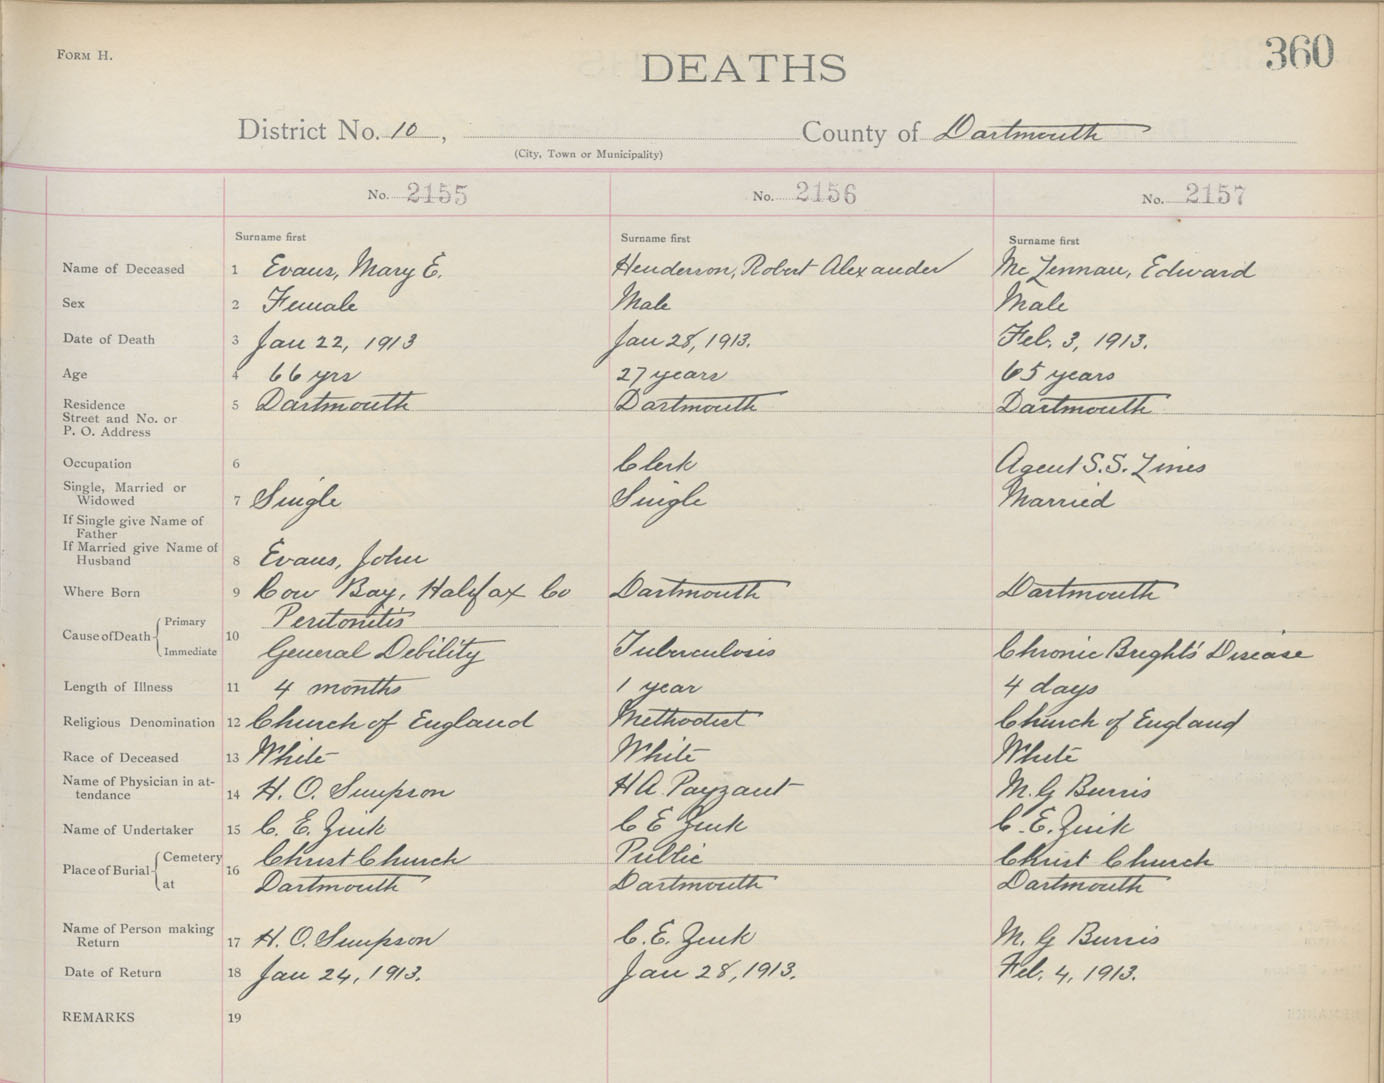 FORM H.
DEATHS
360
District No. 10, County of Dartmouth
(City, Town or Municipality)
No. 2155 No. 2156 No. 2157
Surname first Surname first Surname first
Name of Deceased 1 Evans, Mary E. Henderson, Robert Alexander McLennan, Edward
Sex 2 Female Male Male
Date of Death 3 Jan 22, 1913 Jan 28, 1913. Feb. 3, 1913.
Age 4 66 yrs 27 years 65 years
Residence 5 Dartmouth Dartmouth Dartmouth
Street and No. or
P. O. Address
Occupation 6 Clerk Agent S.S. Lines
Single, Married or
Widowed 7 Single Single Married
If Single give Name of
Father
If Married give Name of
Husband 8 Evans, John
Where Born 9 Cow Bay, Halifax Co Dartmouth Dartmouth
Cause of Death Primary 10 Peritonitis
Immediate General Debility Tuberculosis Chronic Bright's Disease
Length of Illness 11 4 months 1 year 4 days
Religious Denomination 12 Church of England Methodist Church of England
Race of Deceased 13 White White White
Name of Physician in at-
tendance 14 H. O. Simpson H A Payzant M. G Burris
Name of Undertaker 15 C. E. Zink C E Zink C. E. Zink
Place of Burial Cemetery 16 Christ Church Public Christ Church
at Dartmouth Dartmouth Dartmouth
Name of Person making
Return 17 H. O. Simpson C. E. Zink M. G Burris
Date of Return 18 Jan 24, 1913. Jan 28, 1913. Feb. 4, 1913.
REMARKS 19